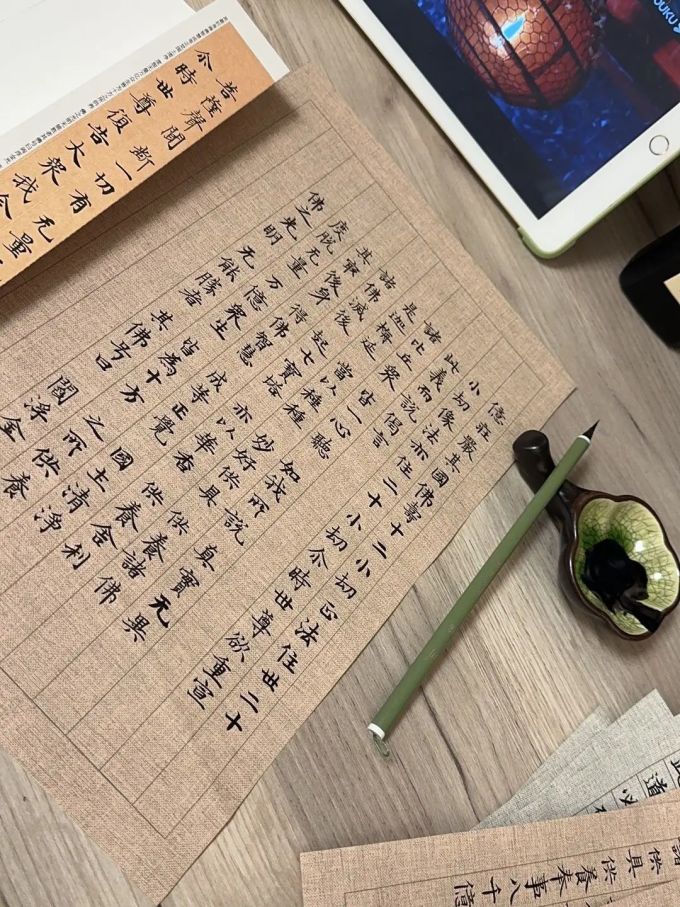 菩薩聲聞斷一切有无量
尒時世尊復告大衆我今
億莊嚴其國佛壽十二小劫正法住世二十
小劫像法亦住二十小劫尒時世尊欲重宣
此義而説偈言
諸比丘衆 皆一心聽 如我所説 真實无異
是迦栴延 當以種種 妙好供具 供養諸佛
諸佛滅後 起七寶塔 亦以華香 供養舍利
其冣後身 得佛智慧 成等正覺 國土清淨
度脫无量 万億衆生 皆為十方 之所供養
佛之光明 无能勝者 其佛号曰 閻浮金
此道以
諸供具供養奉事八千億
YOUKU